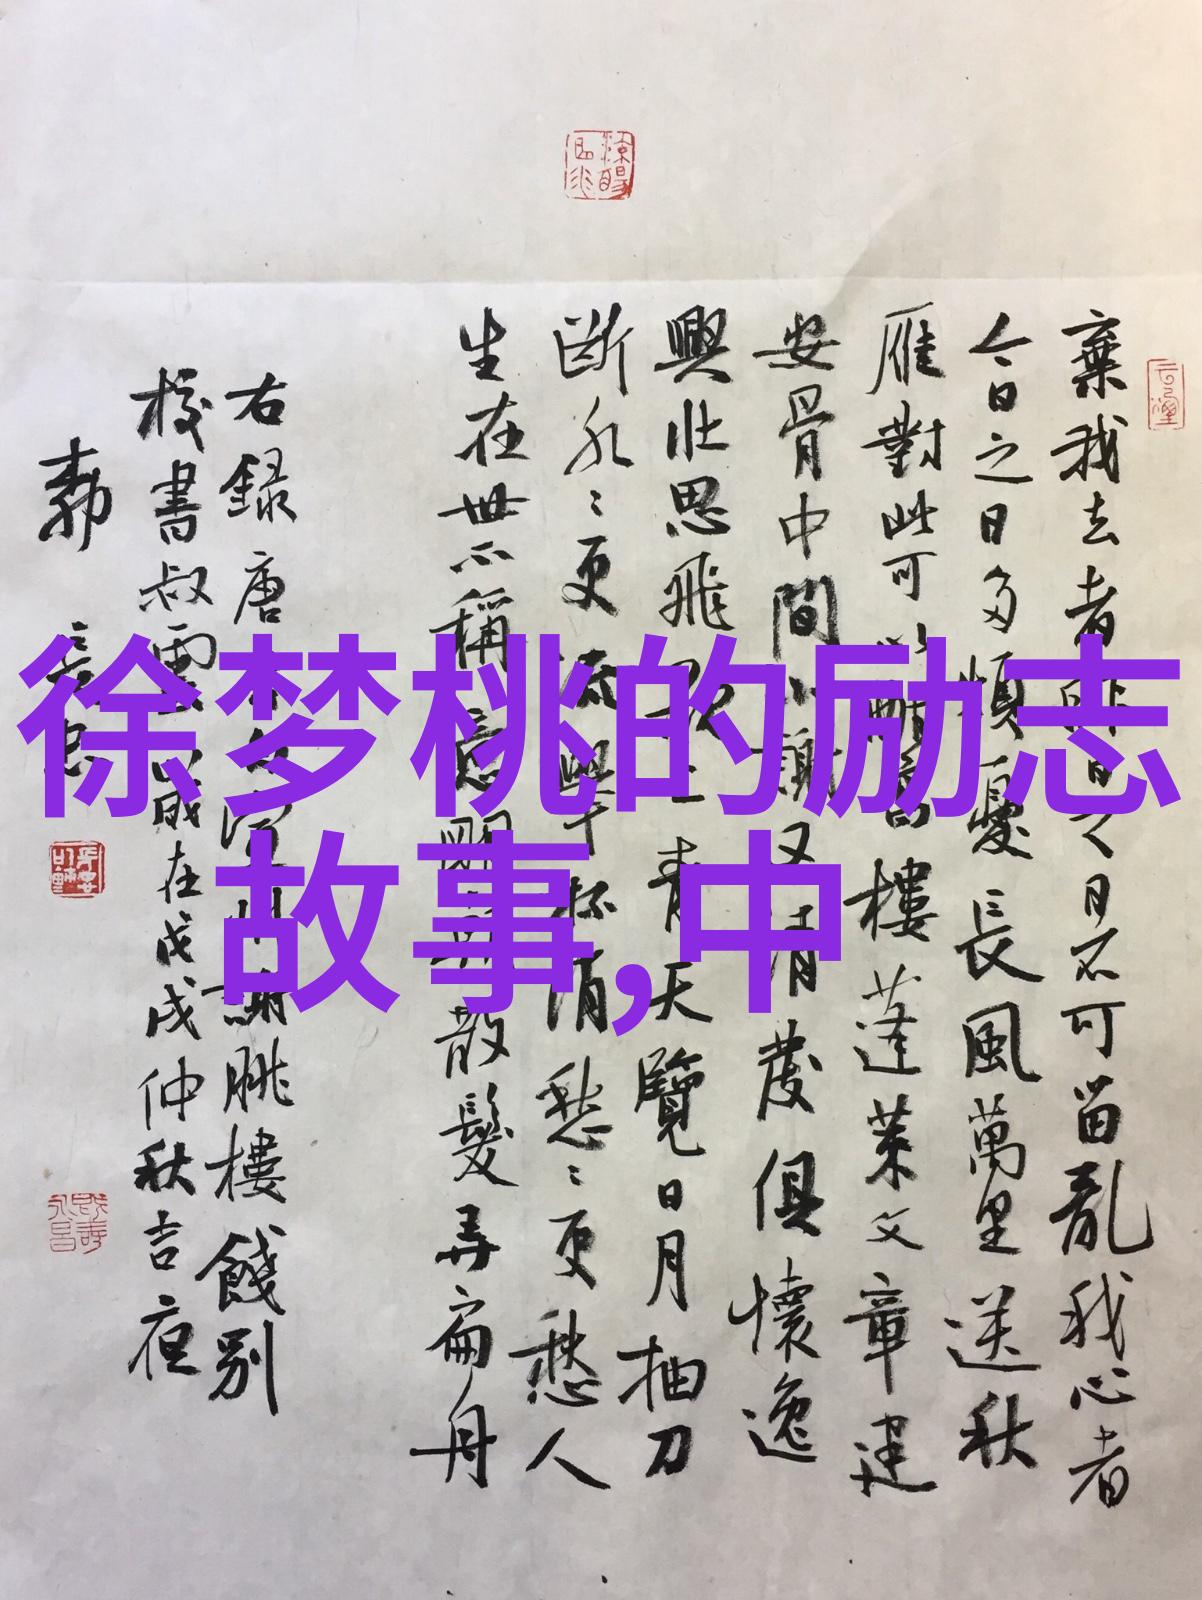 徐梦桃的励志
故事,中
棄我去者昨日之日不可留亂我心者
今日之日多煩憂長風萬里送秋
雁對此可以酣高樓蓬萊文章建
安骨中間小謝又清發俱懷逸
興壯思飛欲上青天覽日月抽刀
斷水〻更流舉杯消愁〻更愁人
生在世不稱意明朝散髮弄扁舟
右録唐李白宣州謝朓樓餞別
校書叔雲歲在戊戌仲秋吉夜